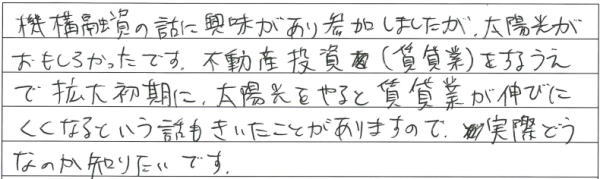 機構融資の話に興味があり参加しましたが、太陽光が
おもしろかったです。不動産投資(賃貸業)をするうえ
で拡大初期に、太陽光をやると賃貸業が伸びに
くくなるという話もきいたことがありますので、実際どう
なのか知りたいです。